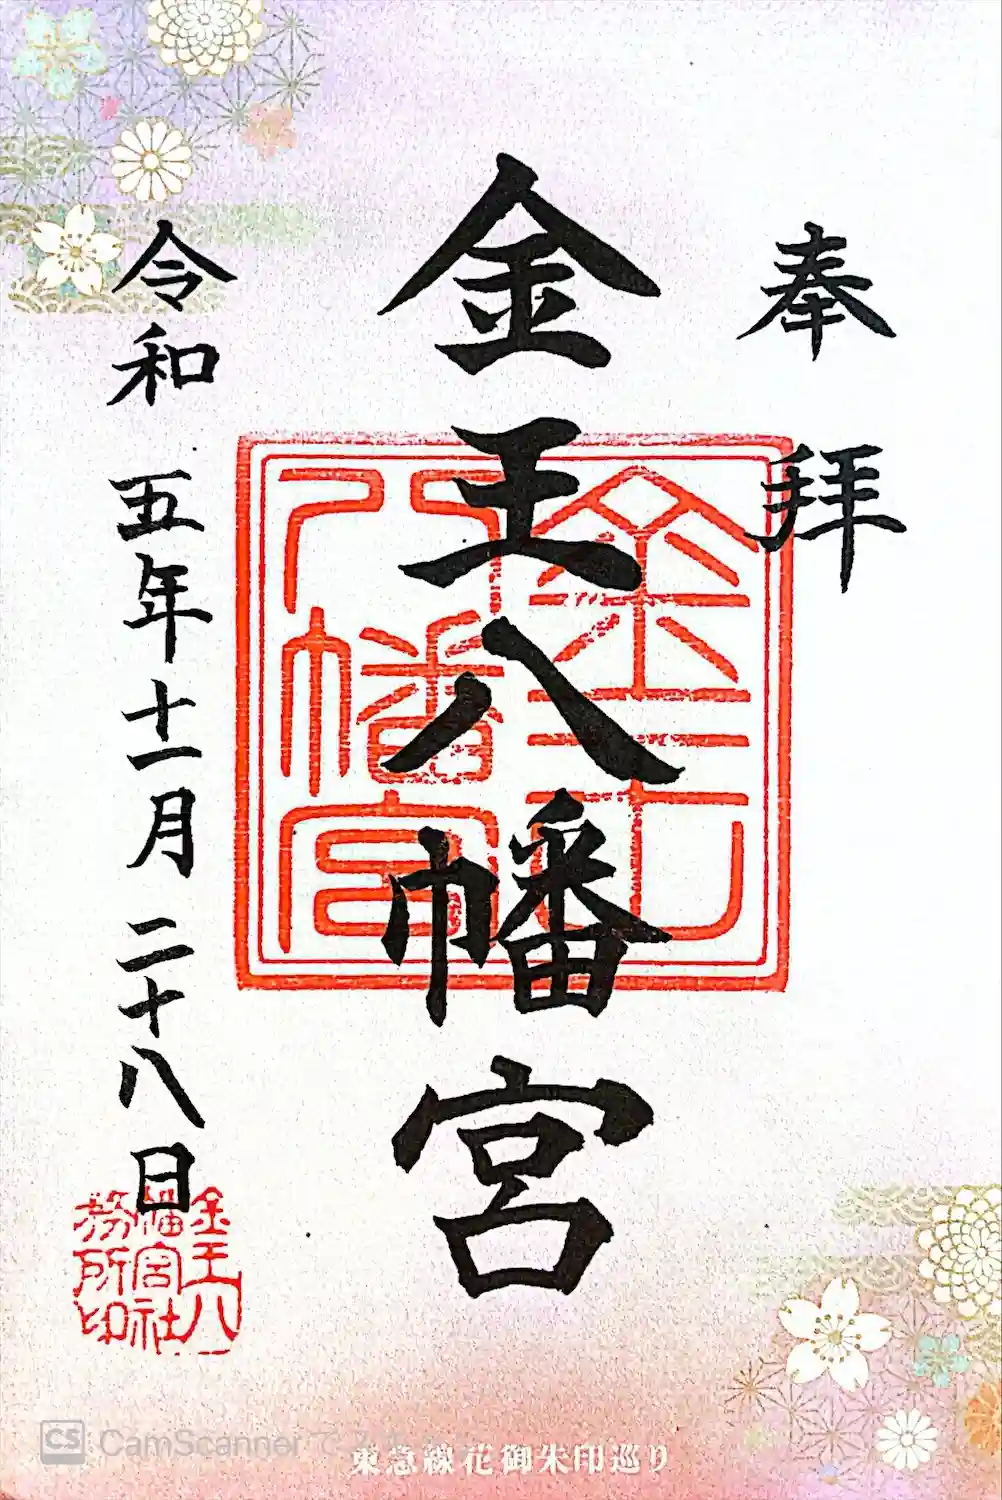 奉拝
金王八幡宮
令和五年十一月二十八日
金王八幡宮
金王八
幡宮社
務所印
東急線花御朱印巡り
CS CamScanner で